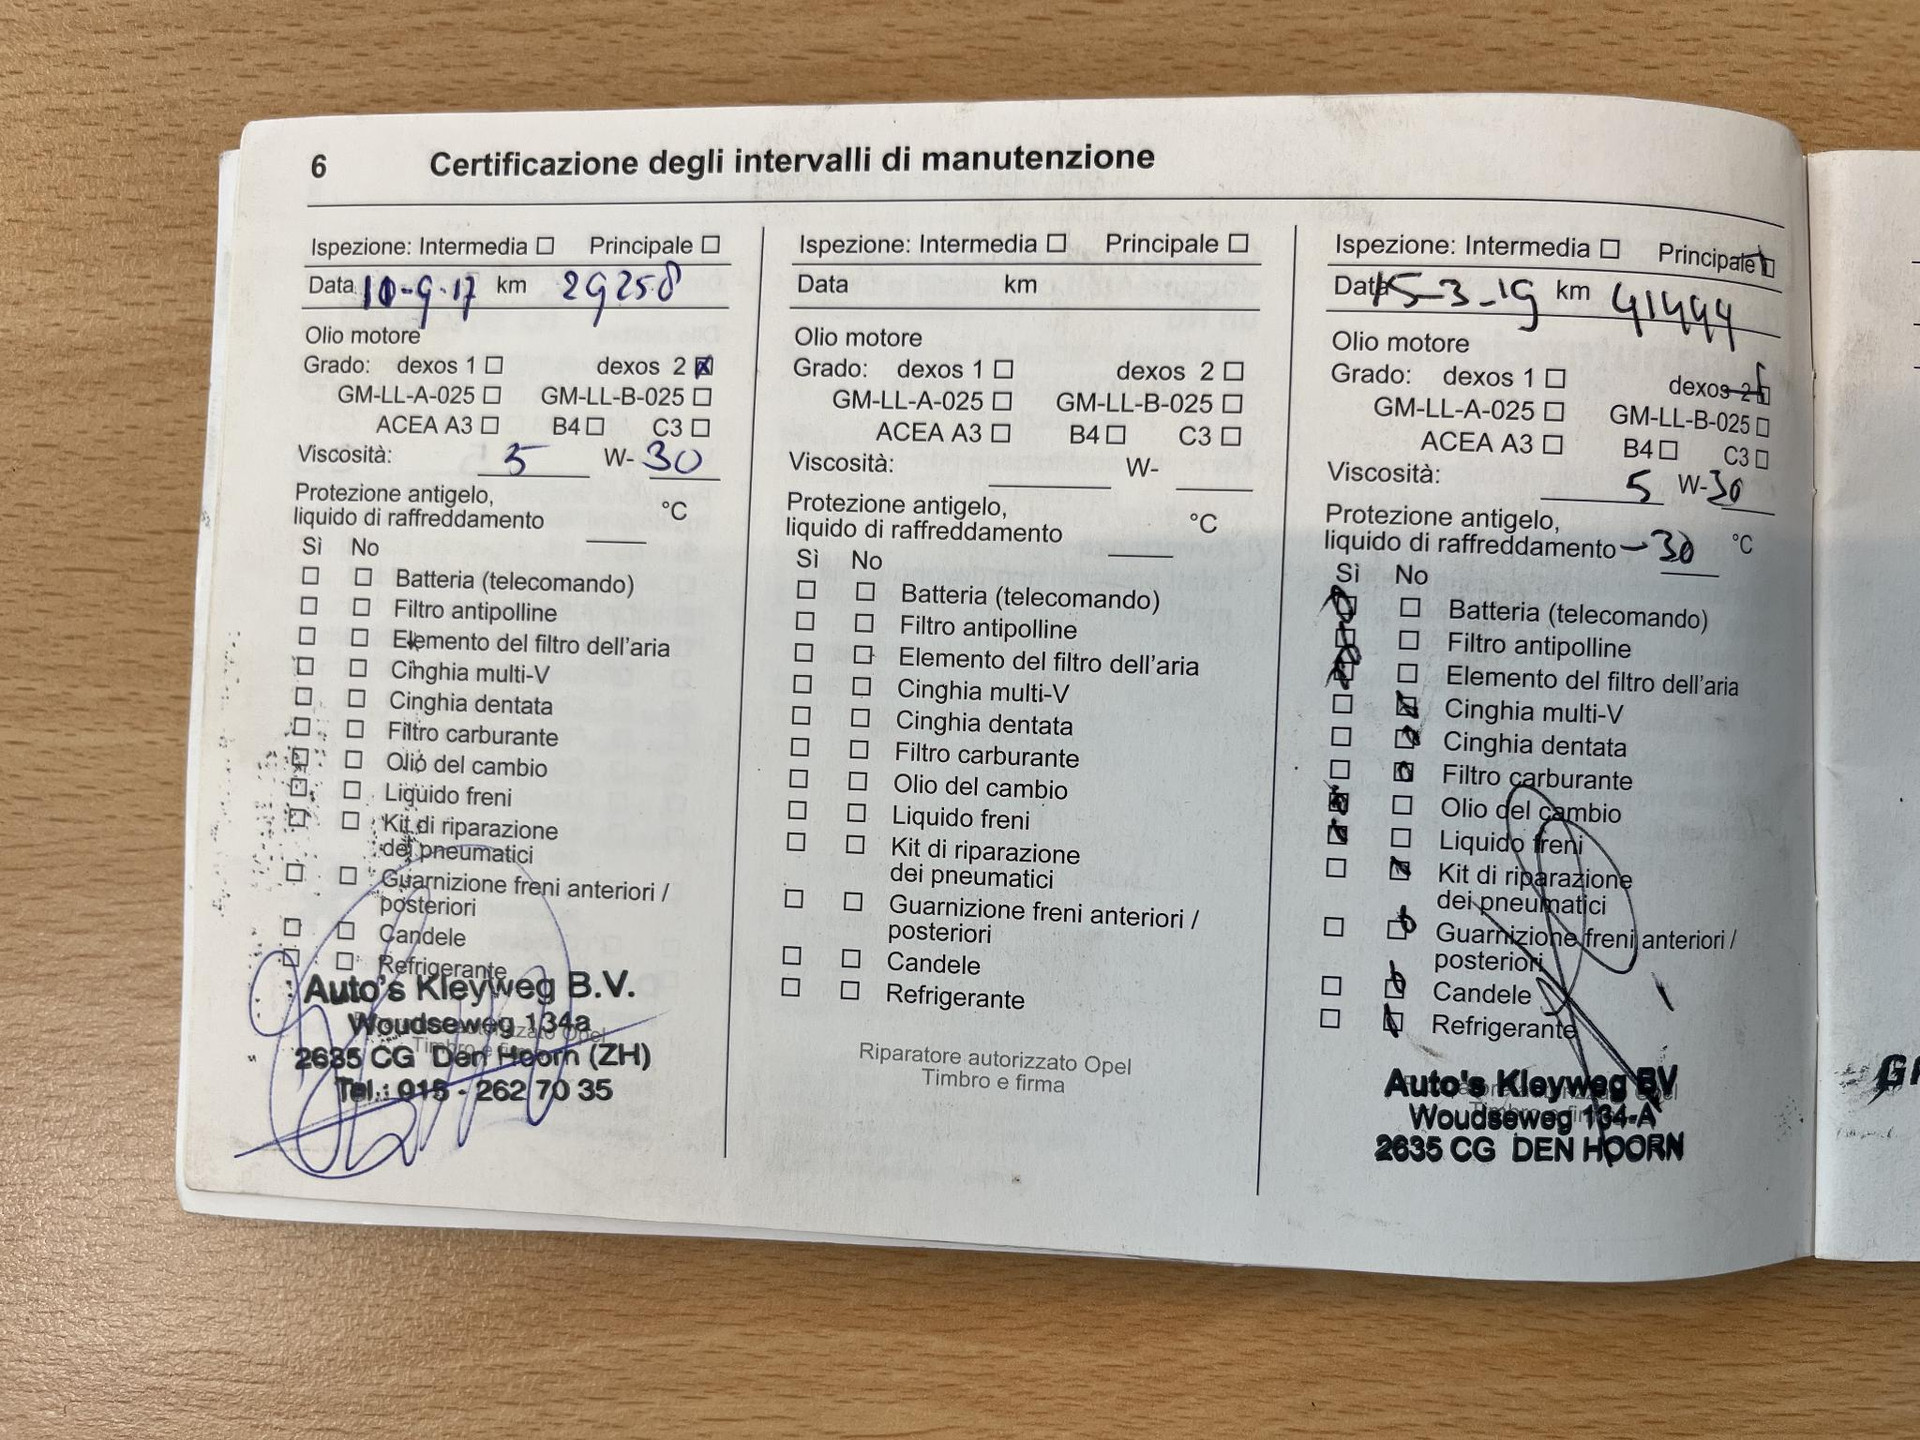 6 Certificazione degli intervalli di manutenzione
Ispezione: Intermedia Principale
Data 10-9-17 km 29258
Olio motore
Grado: dexos 1 dexos 2
GM-LL-A-025 GM-LL-B-025
ACEA A3 B4 C3
Viscosità: 5 W-30
Protezione antigelo,
liquido di raffreddamento °C
Sì No
Batteria (telecomando)
Filtro antipolline
Elemento del filtro dell'aria
Cinghia multi-V
Cinghia dentata
Filtro carburante
Olio del cambio
Liquido freni
Kit di riparazione
dei pneumatici
Guarnizione freni anteriori /
posteriori
Candele
Refrigerante
Auto's Kleyweg B.V.
Woudseweg 134a
2635 CG Den Hoorn (ZH)
Tel.: 015 - 262 70 35
Ispezione: Intermedia Principale
Data km
Olio motore
Grado: dexos 1 dexos 2
GM-LL-A-025 GM-LL-B-025
ACEA A3 B4 C3
Viscosità: W-
Protezione antigelo,
liquido di raffreddamento °C
Sì No
Batteria (telecomando)
Filtro antipolline
Elemento del filtro dell'aria
Cinghia multi-V
Cinghia dentata
Filtro carburante
Olio del cambio
Liquido freni
Kit di riparazione
dei pneumatici
Guarnizione freni anteriori /
posteriori
Candele
Refrigerante
Riparatore autorizzato Opel
Timbro e firma
Ispezione: Intermedia Principale
Data 15-3-19 km 41444
Olio motore
Grado: dexos 1 dexos 2
GM-LL-A-025 GM-LL-B-025
ACEA A3 B4 C3
Viscosità: 5 W-30
Protezione antigelo,
liquido di raffreddamento -30 °C
Sì No
Batteria (telecomando)
Filtro antipolline
Elemento del filtro dell'aria
Cinghia multi-V
Cinghia dentata
Filtro carburante
Olio del cambio
Liquido freni
Kit di riparazione
dei pneumatici
Guarnizione freni anteriori /
posteriori
Candele
Refrigerante
Auto's Kleyweg BV
Woudseweg 134-A
2635 CG DEN HOORN